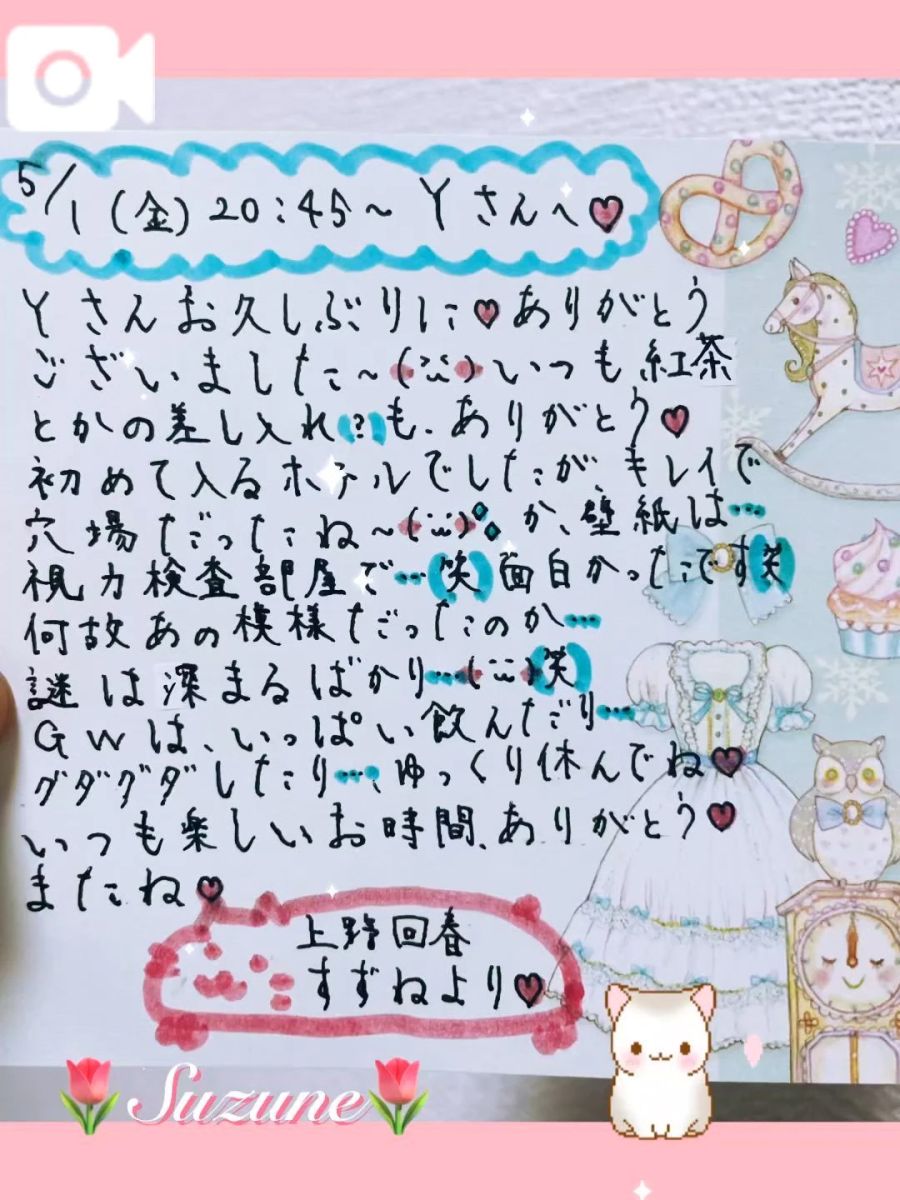 5/1(金)20:45~ Yさんへ♥
Yさんお久しぶりに♥ありがとう
ございました~(¨̮)いつも紅茶
とかの差し入れ(?)も、ありがとう♥
初めて入るホテルでしたが、キレイで
穴場だったね~(¨̮)か、壁紙は…
視力検査部屋で…(笑)面白かったです(笑)
何故あの模様だったのか…
謎は深まるばかり…(¨̮)(笑)
GWは、いっぱい飲んだり…
グダグダしたり…、ゆっくり休んでね♥
いつも楽しいお時間、ありがとう♥
またね♥
上野回春
すずねより♥
Suzune